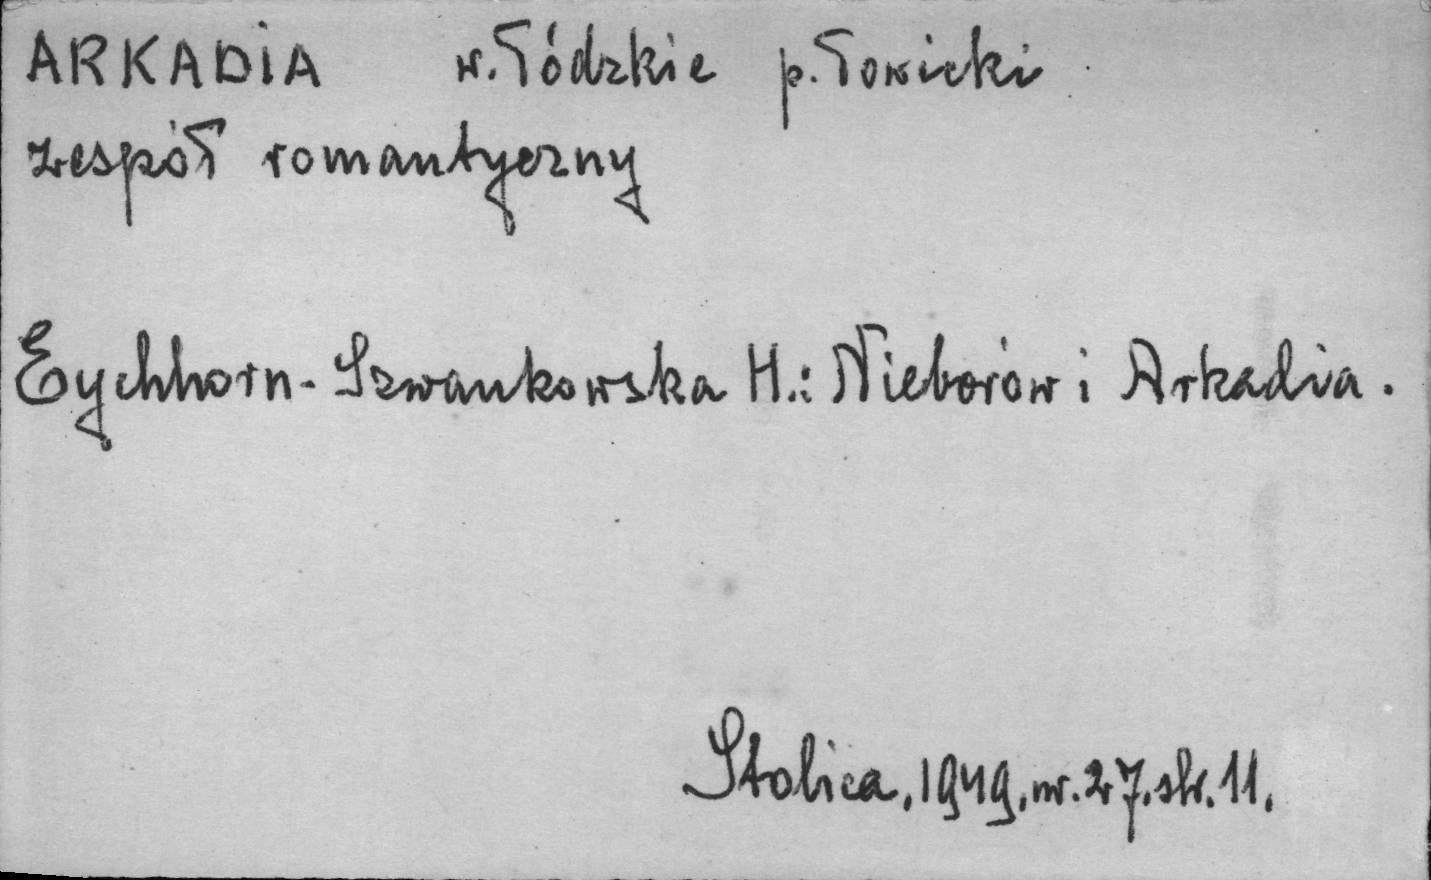 ARKADIA w. Łódzkie p. Łowicki
zespół romantyczny
Eychhorn-Szwankowska H.: Nieborów i Arkadia.
Stolica, 1949, nr. 27. str. 11.